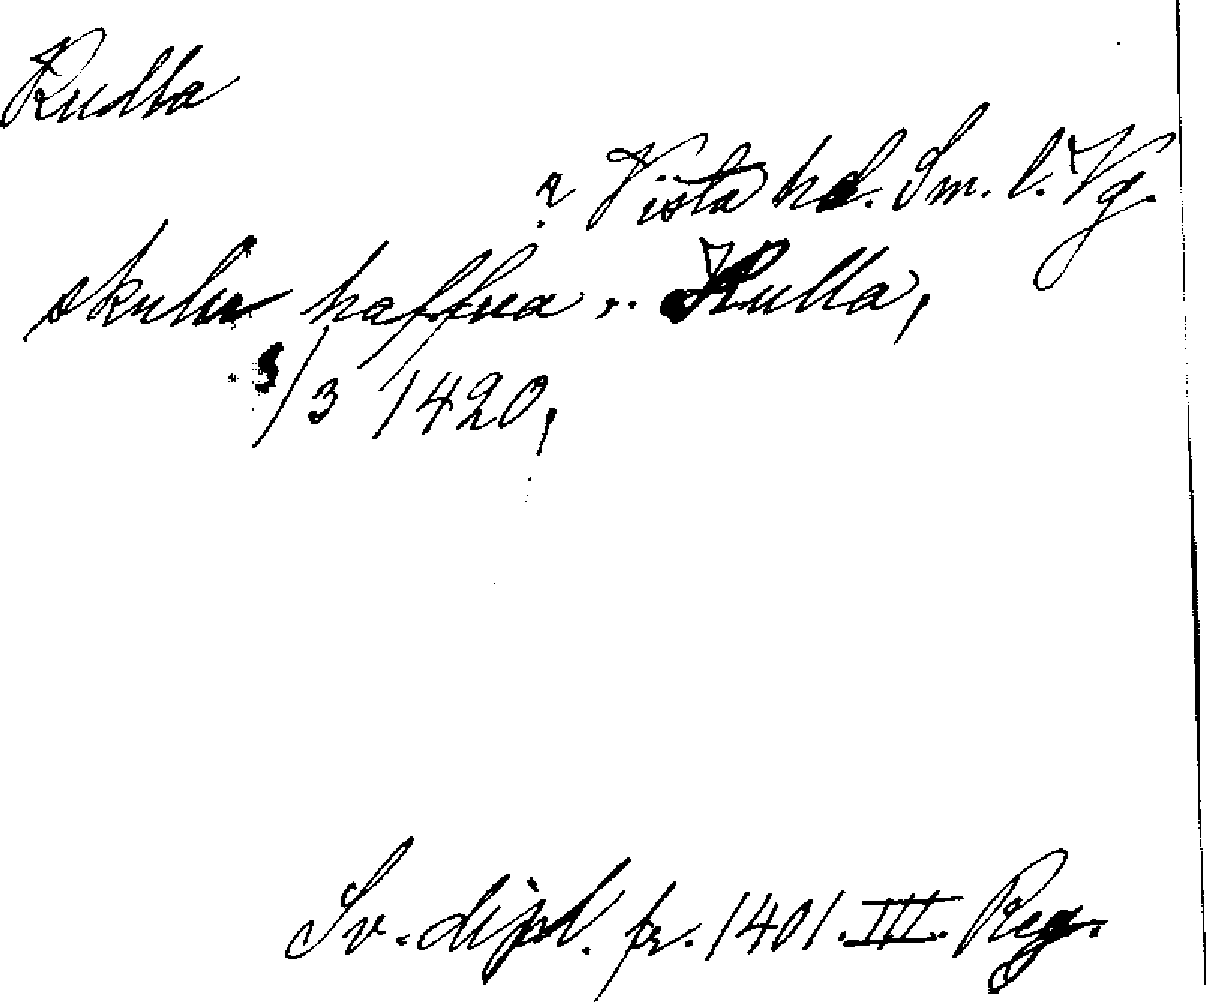 Rudba
? Vista hd. Sm. l. Vg.
haffua .. Rulla,
/3 1420,
Sv. dipl. fr. 1401. III. Reg.